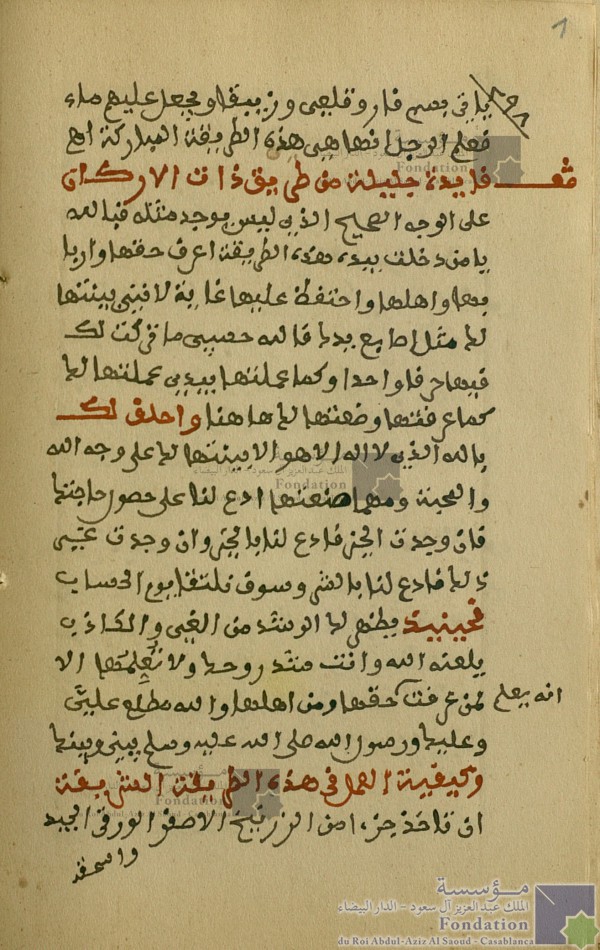 1
باقي بصم فار وقلعي وزيبقا ويجعل عليهم ماء
فعلم الرجل انها هي هذه الطريقة المباركة اهـ
فايدة جليلة من طريق ذات الاركان
على الوجه الصحيح الذي ليس يوجد مثله فبالله
يامن دخلت بيده هذه الطريقة اعرف حقها واربا
بها واهلها واحتفظ عليها غاية لانني بينتها
لك مثل اصابع يدك فالله حسيبي ما تركت لك
فيها حرفا واحدا وكما عملتها بيدي عملتها لك
كما عرفتها وضعتها لك هاهنا واحلف لك
بالله الذي لا اله الا هو الا بينتها لك على وجه الله
والمحبة ومهما صنعتها ادع لنا على حصول حاجتنا
فان وجدت الخير فادع لنا بالخير وان وجدت غير
ذلك فادع لنا بالشر وسوف نلتقا يوم الحساب
فحينيذ يظهر لك الرشد من الغي والكاذب
يلعنه الله وانت متدر وحدك ولا تعلمها الا
لمن عرفت حقها ومن اهلها والله مطلع علي
انه يعلم
وعليك ورصول الله صلى الله عليه وسلم بيني وبينك
وكيفية العمل في هذه الطريقة الشريفة
ان تاخذ جزء من الزرنيخ الاصفر الورقي الجيد
مؤسسة
الملك عبد العزيز آل سعود - الدار البيضاء
Fondation
du Roi Abdul-Aziz Al Saoud - Casablanca